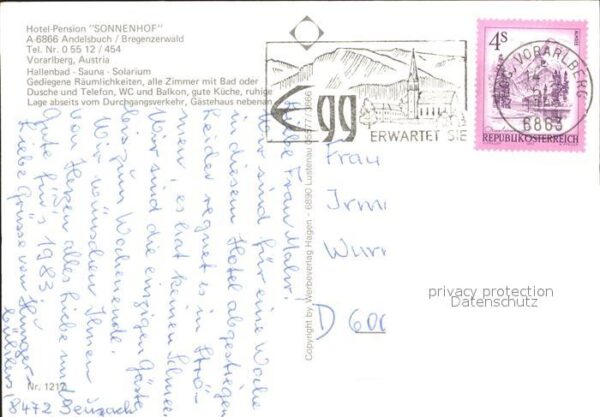 Hotel-Pension "SONNENHOF"
A-6866 Andelsbuch / Bregenzerwald
Tel. Nr. 0 55 12 / 454
Vorarlberg, Austria
Hallenbad - Sauna - Solarium
Gediegene Räumlichkeiten, alle Zimmer mit Bad oder
Dusche und Telefon, WC und Balkon, gute Küche, ruhige
Lage abseits vom Durchgangsverkehr, Gästehaus nebenan
Liebe Frau
Wir sind für eine Woche
in diesem Hotel abgestiegen
Leider regnet es in Strö-
men, es hat keinen Schnee
Wir sind die einzigen Gäste
bis zum Wochenende.
Wir wünschen Ihnen
von Herzen alles Liebe und
Gute für's 1983.
Liebe Grüsse von
8472 Seuzach
Nr. 1217
Copyright by Werbeverlag Hagen - 6890 Lustenau
Egg
ERWARTET SIE
4S
REPUBLIK ÖSTERREICH
VORARLBERG
6863
Frau
Irm
Wur
D 600
privacy protection
Datenschutz